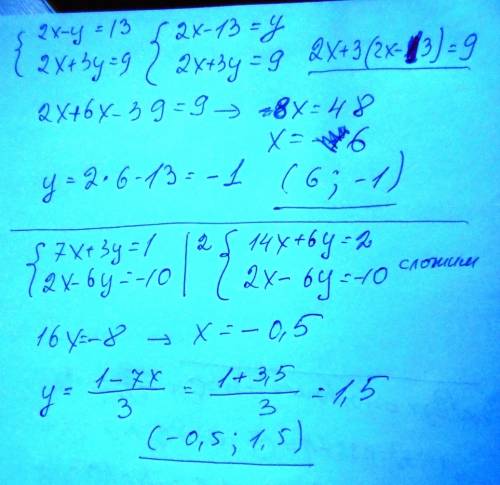 { 2x-y=13 { 2x-13=y
{ 2x+3y=9 { 2x+3y=9 2x+3(2x-13)=9
2x+6x-39=9 → 8x=48
x=6
y=2·6-13=-1 (6;-1)
{ 7x+3y=1 |2 { 14x+6y=2
{ 2x-6y=-10 { 2x-6y=-10 сложим
16x=-8 → x=-0,5
y= (1-7x)/3 = (1+3,5)/3 =1,5
(-0,5;1,5)